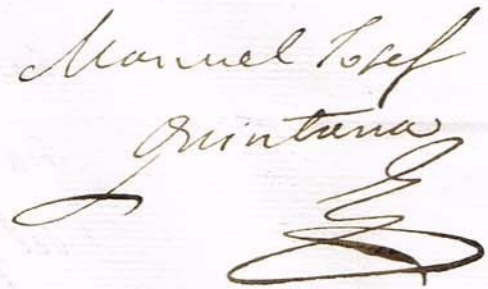 Manuel Josef
Quintana